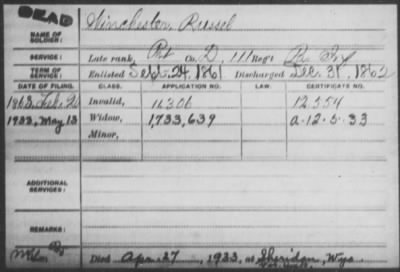 DEAD
Winchester, Russel
NAME OF SOLDIER:
SERVICE: Late rank, Pvt Co. D, 111 Reg't Pa. Inf
TERM OF SERVICE: Enlisted Sept. 24, 1861 Discharged Dec. 31, 1862
DATE OF FILING. CLASS. APPLICATION NO. LAW. CERTIFICATE NO.
1863, Feb. Invalid, 12306 12554
1933, May 13 Widow, 1,733,639 a-12-5-33
Minor,
ADDITIONAL SERVICES:
REMARKS:
Died Apr. 27, 1933, at Sheridan, Wyo